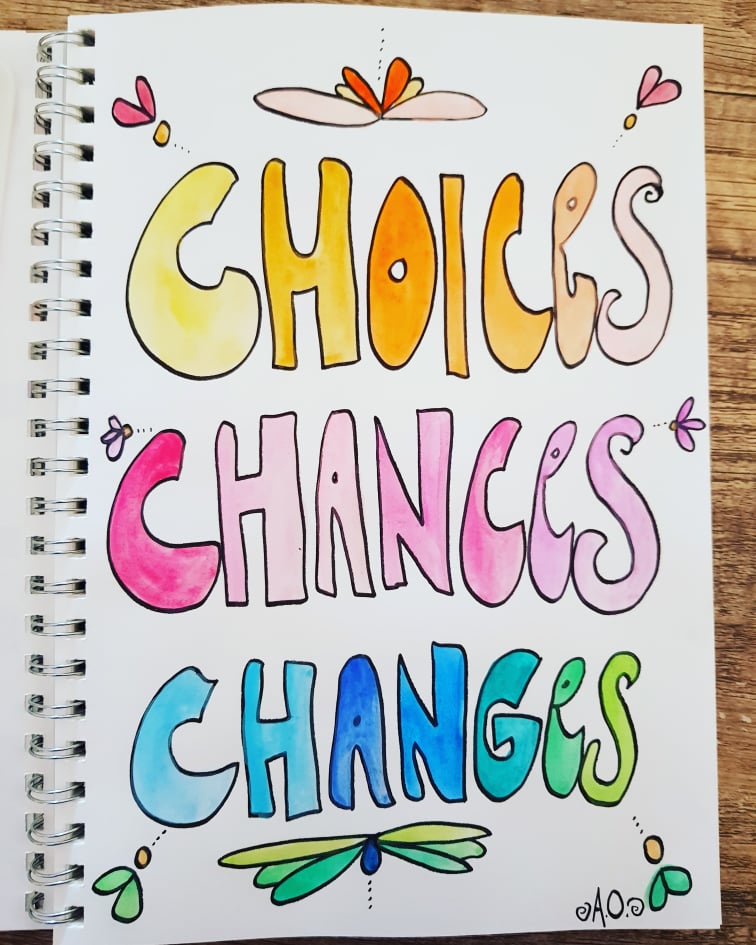 CHOICeS
CHANCeS
CHANGeS
A.O.